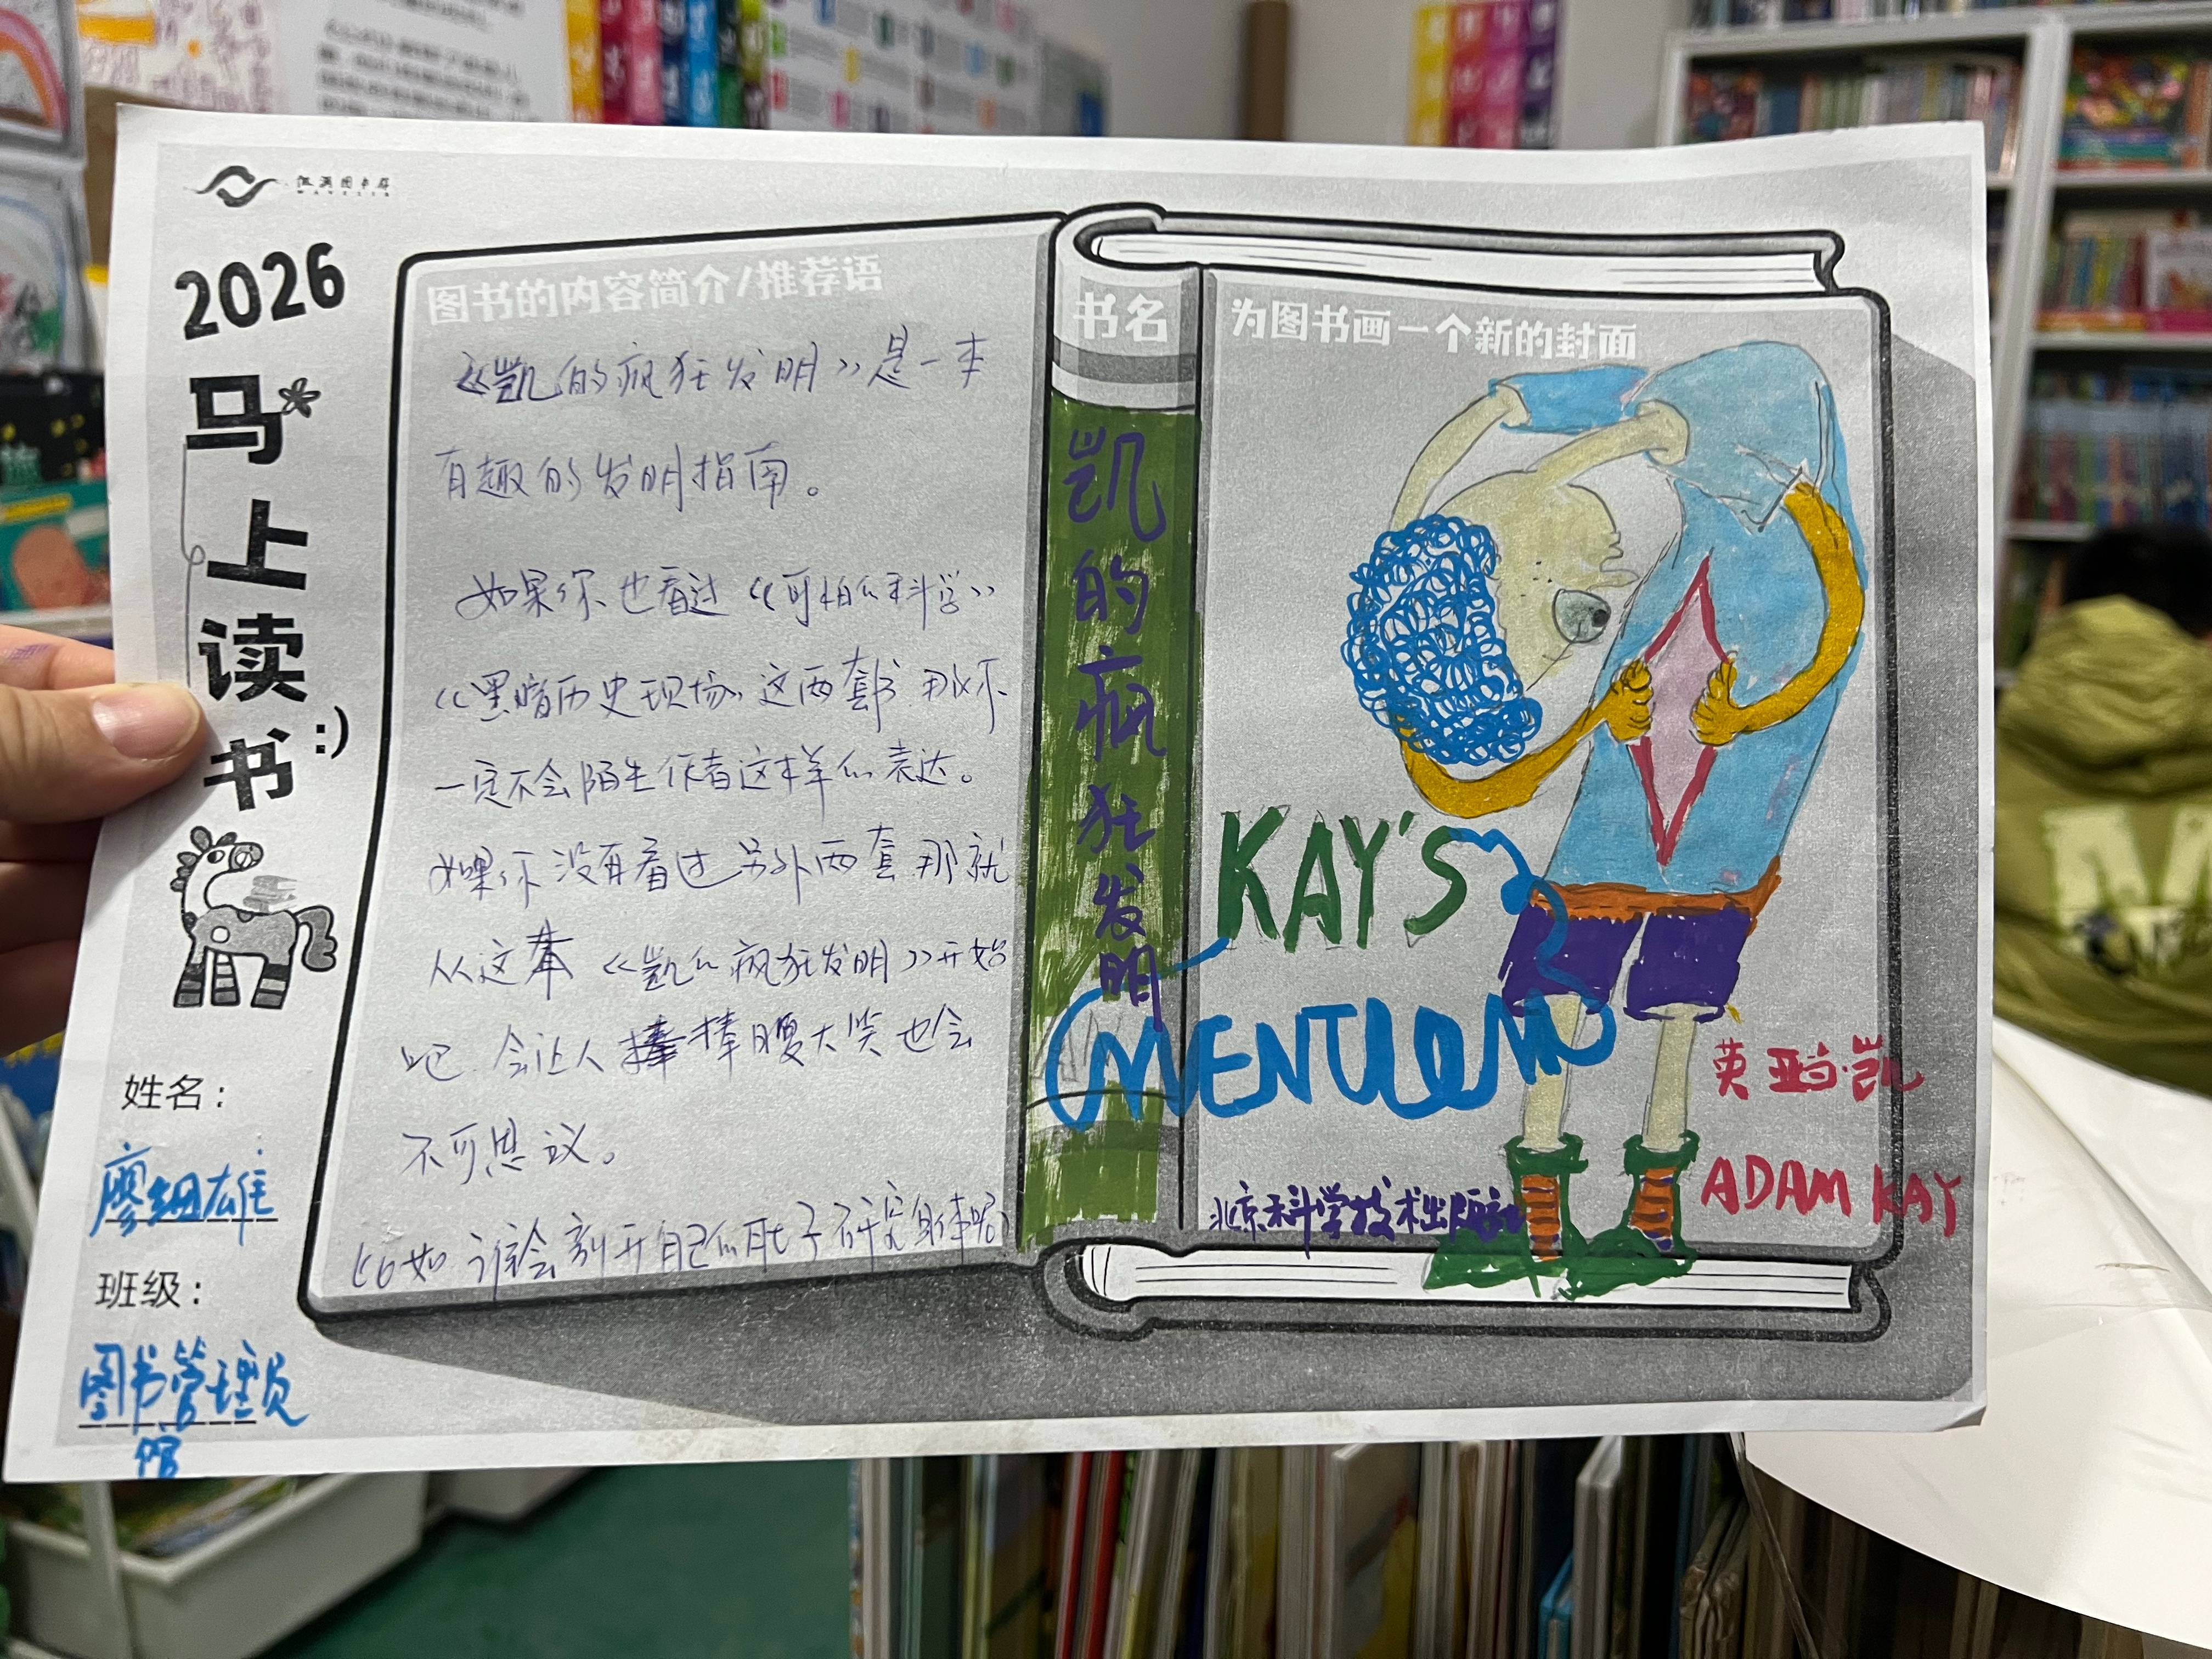 2026
马上读书:)
姓名：
班级：
图书管理员
馆
图书的内容简介/推荐语
《凯的疯狂发明》是一本
有趣的发明指南。
如果你也看过《可怕的科学》
《黑暗历史现场》这两套书 那你
一定不会陌生作者这样的表达。
如果你没有看过另外两套那就
从这本《凯的疯狂发明》开始
吧 会让人捧腹大笑也会
不可思议。
比如 谁会剖开自己的肚子研究身体呢
书名
凯的疯狂发明
为图书画一个新的封面
KAY'S
INVENTIONS
英 亚当·凯
ADAM KAY
北京科学技术出版社